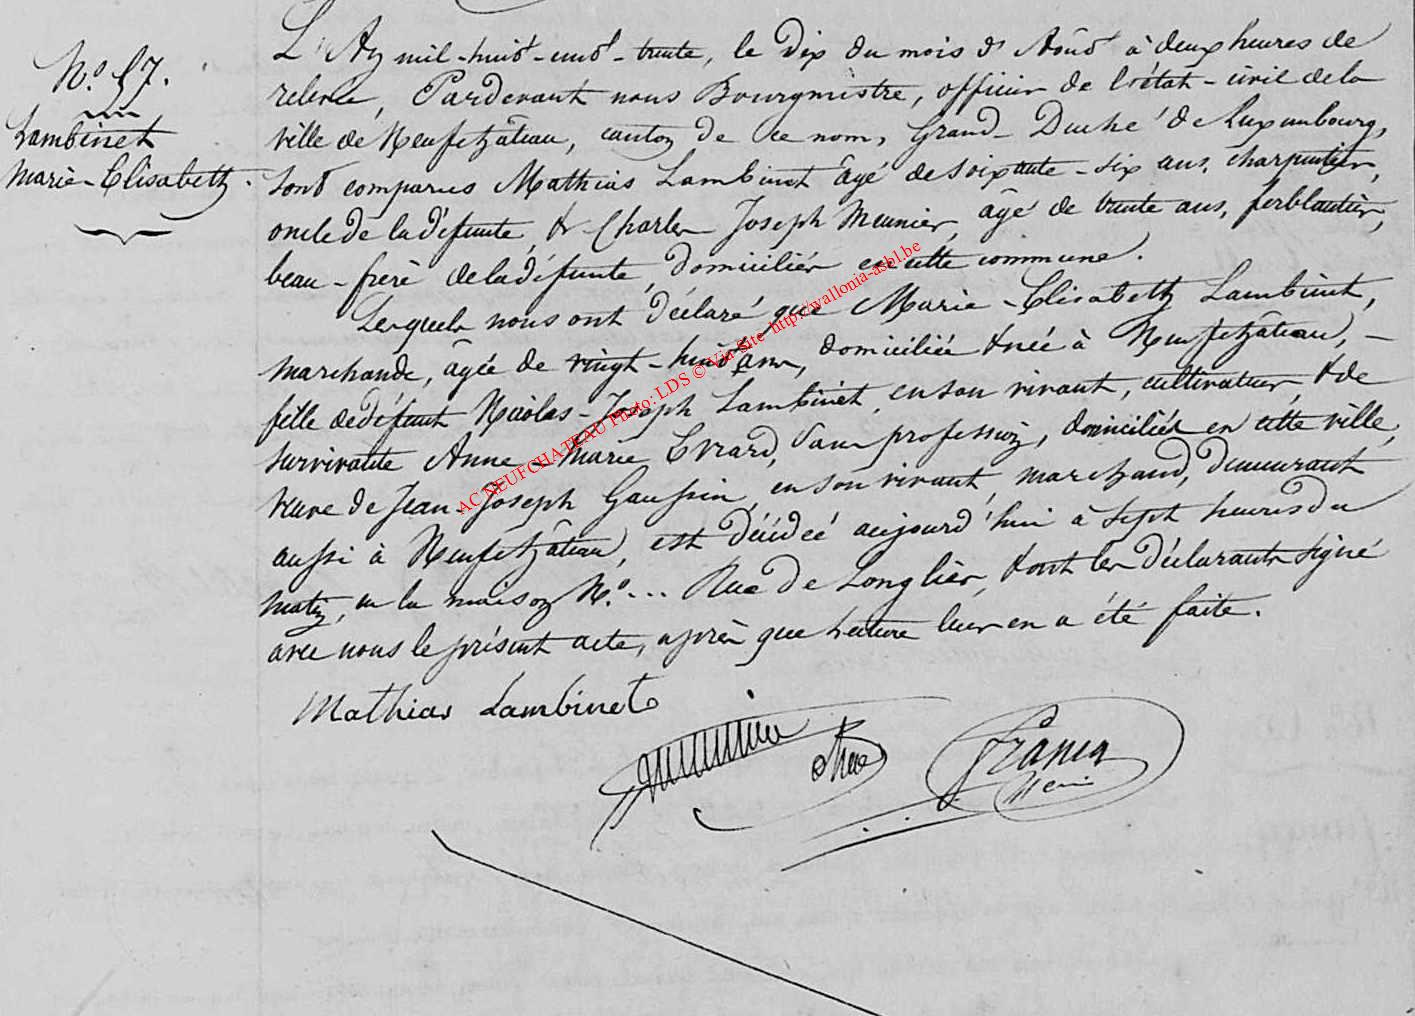 N.° 57.
Lambinet
Marie-Elisabeth.
L'An mil-huit-cent-trente, le dix du mois d'Aoüt à deux heures de
relevée, Pardevant nous Bourgmestre, officier de l'état-civil de la
ville de Neufchâteau, canton de ce nom, Grand-Duché de Luxembourg,
sont comparus Mathias Lambinet âgé de soixante-six ans, charpentier,
oncle de la défunte, & Charles Joseph Meunier, âgé de trente ans, ferblantier,
beau-frère de la défunte, domiciliés en cette commune.
Lesquels nous ont déclaré que Marie-Elisabeth Lambinet,
marchande, âgée de vingt-huit ans, domiciliée & née à Neufchâteau, -
fille de défunt Nicolas-Joseph Lambinet, en son vivant, cultivateur, & de
survivante Anne-Marie Evrard, sans profession, domiciliés en cette ville,
veuve de Jean-Joseph Gaussin, en son vivant marchand, demeurant
aussi à Neufchâteau, est décédée aujourd'hui à sept heures du
matin, en la maison N.° ... Rue de Longlier, dont les déclarants signé
avec nous le présent acte, après que lecture leur en a été faite.
Mathias Lambinet
AC NEUFCHATEAU Photo: LDS © Via Site http://wallonia-asbl.be